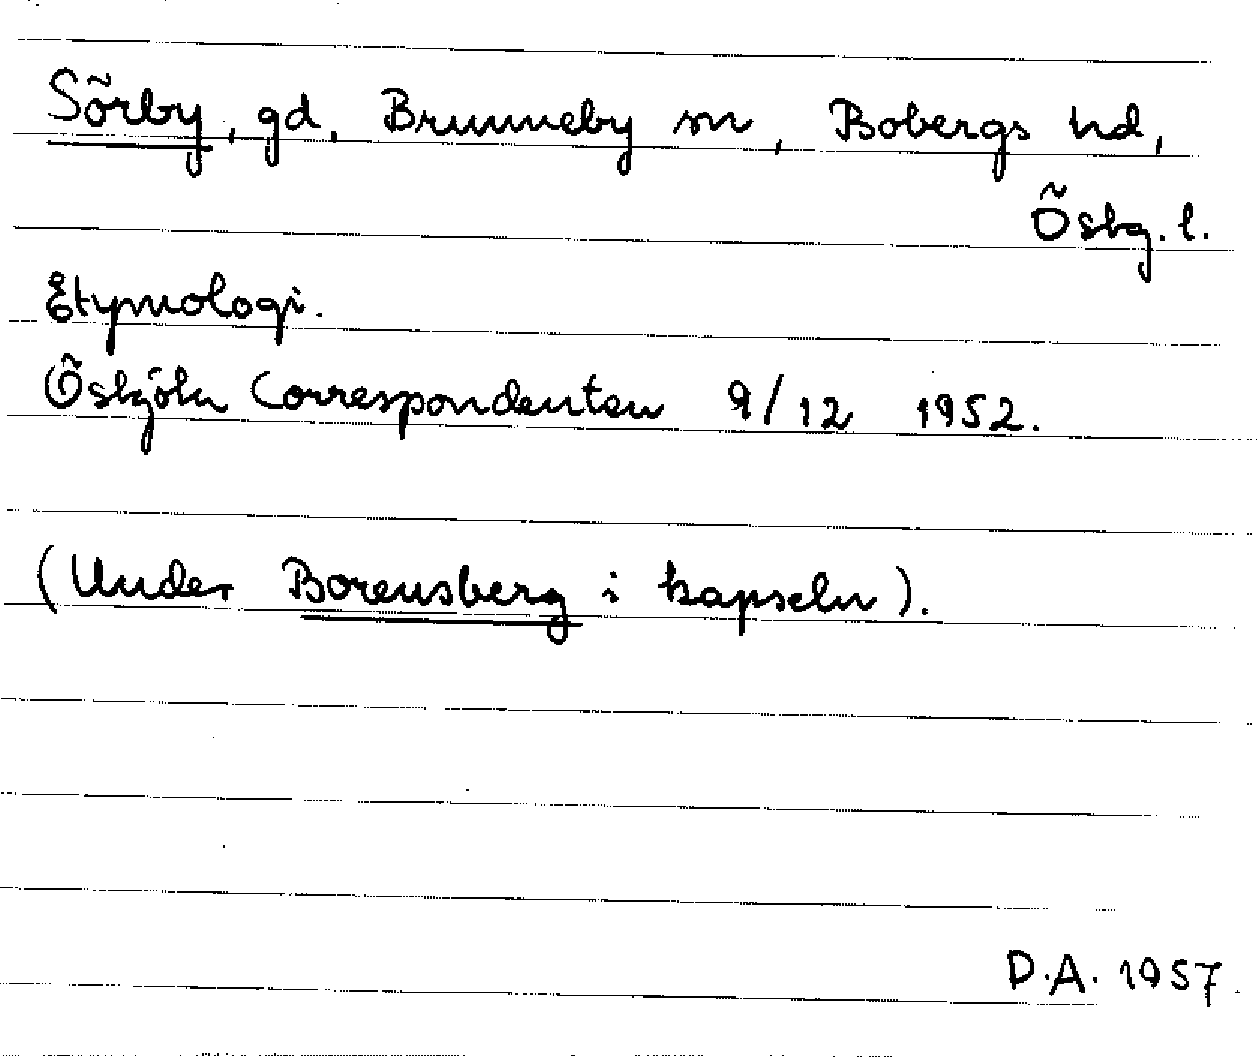 Sörby, gd, Brunneby sn, Bobergs hd,
Östg. l.
Etymologi.
Östgöten Correspondenten 9/12 1952.
(Under Borensberg i kapseln).
D.A. 1957.